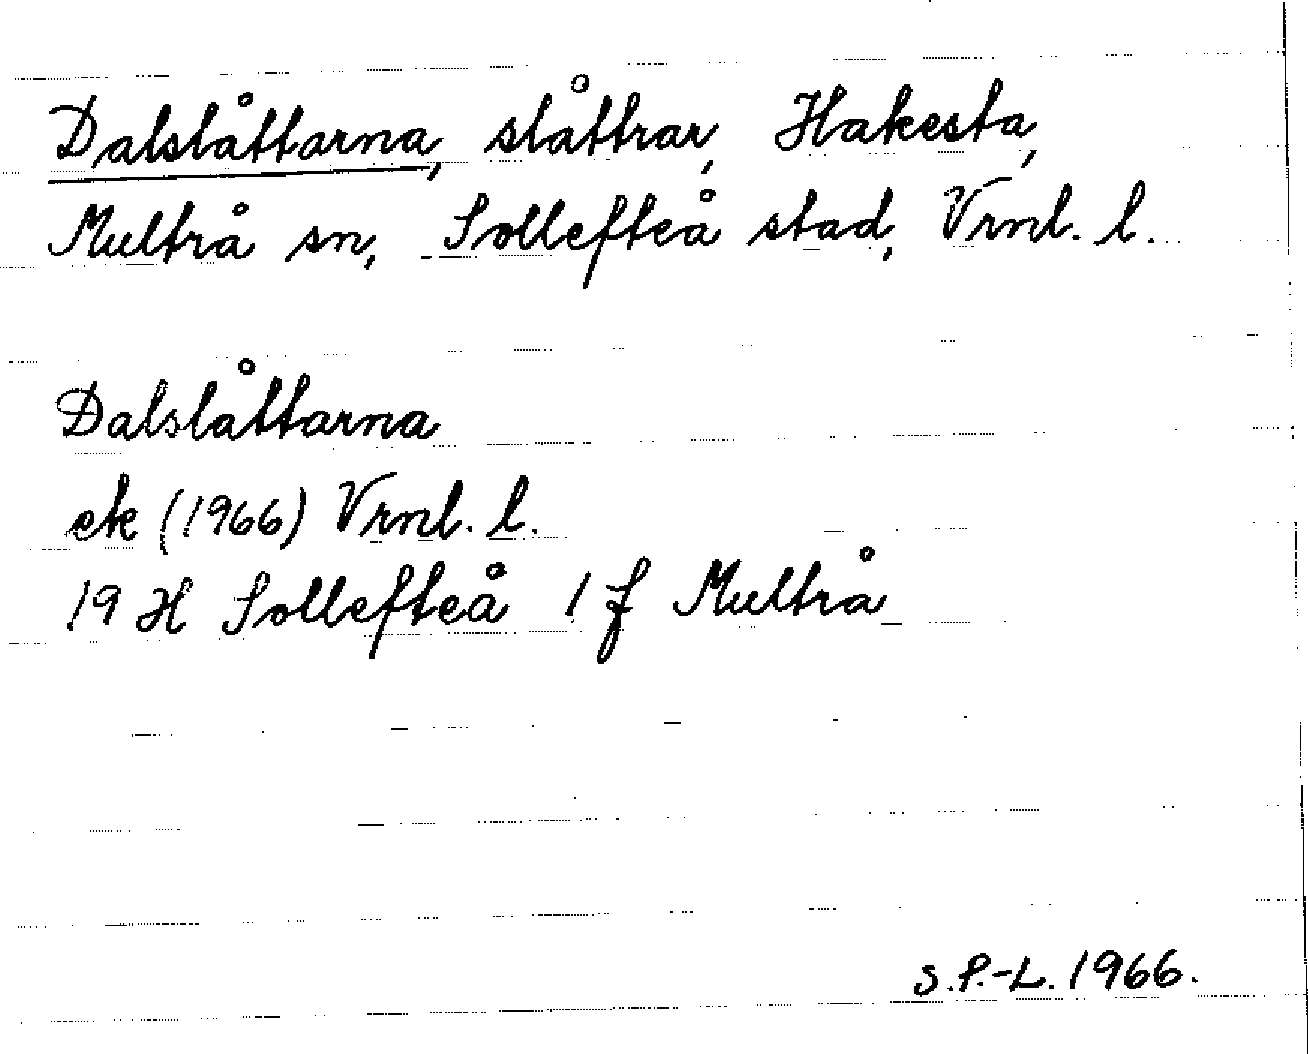 Dalslåttarna, slåttrar, Hakesta,
Multrå sn, Sollefteå stad, Vrnl. l.
Dalslåttarna
ek (1966) Vrnl. l.
19 H Sollefteå 1 f Multrå
S.P.-L. 1966.